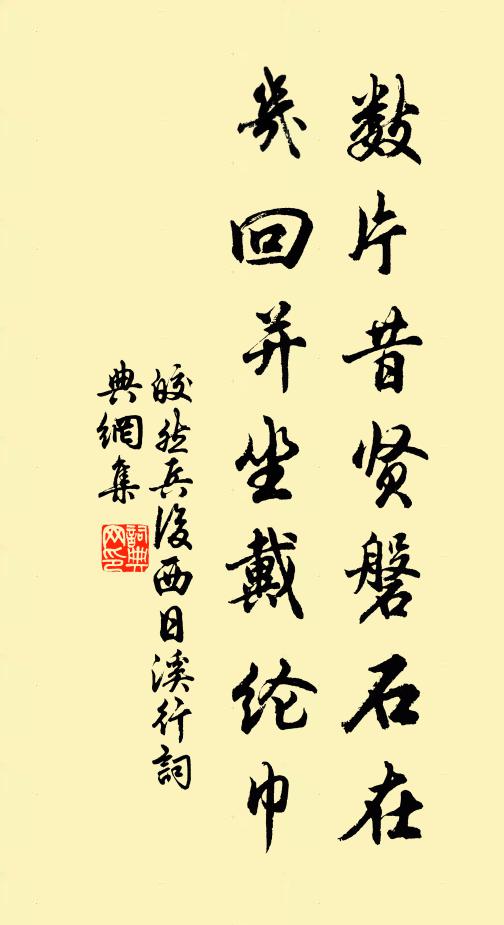 数片昔贤磐石在
几回并坐戴纶巾
皎然兵後西日溪行詞
典網集
詞典網印